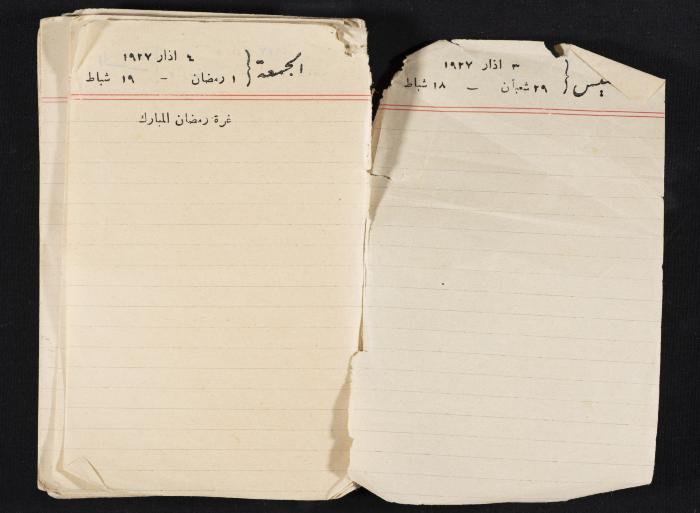 ٣ اذار ١٩٢٧
٢٩ شعبان – ١٨ شباط
الجمعة
٤ اذار ١٩٢٧
١ رمضان – ١٩ شباط
غرة رمضان المبارك